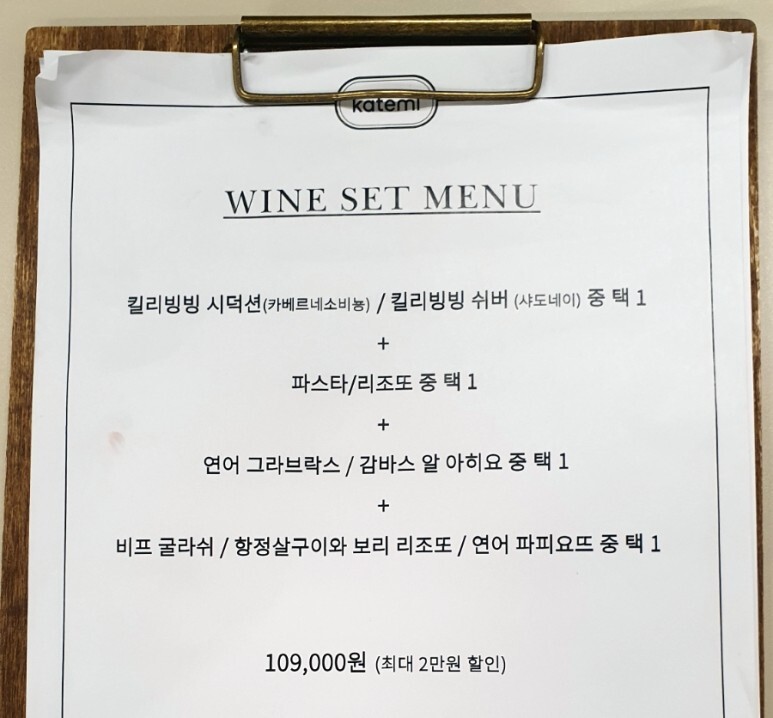 katemi
WINE SET MENU
킬리빙빙 시덕션(카베르네소비뇽) / 킬리빙빙 쉬버 (샤도네이) 중 택 1
+
파스타/리조또 중 택 1
+
연어 그라브락스 / 감바스 알 아히요 중 택 1
+
비프 굴라쉬 / 항정살구이와 보리 리조또 / 연어 파피요뜨 중 택 1
109,000원 (최대 2만원 할인)